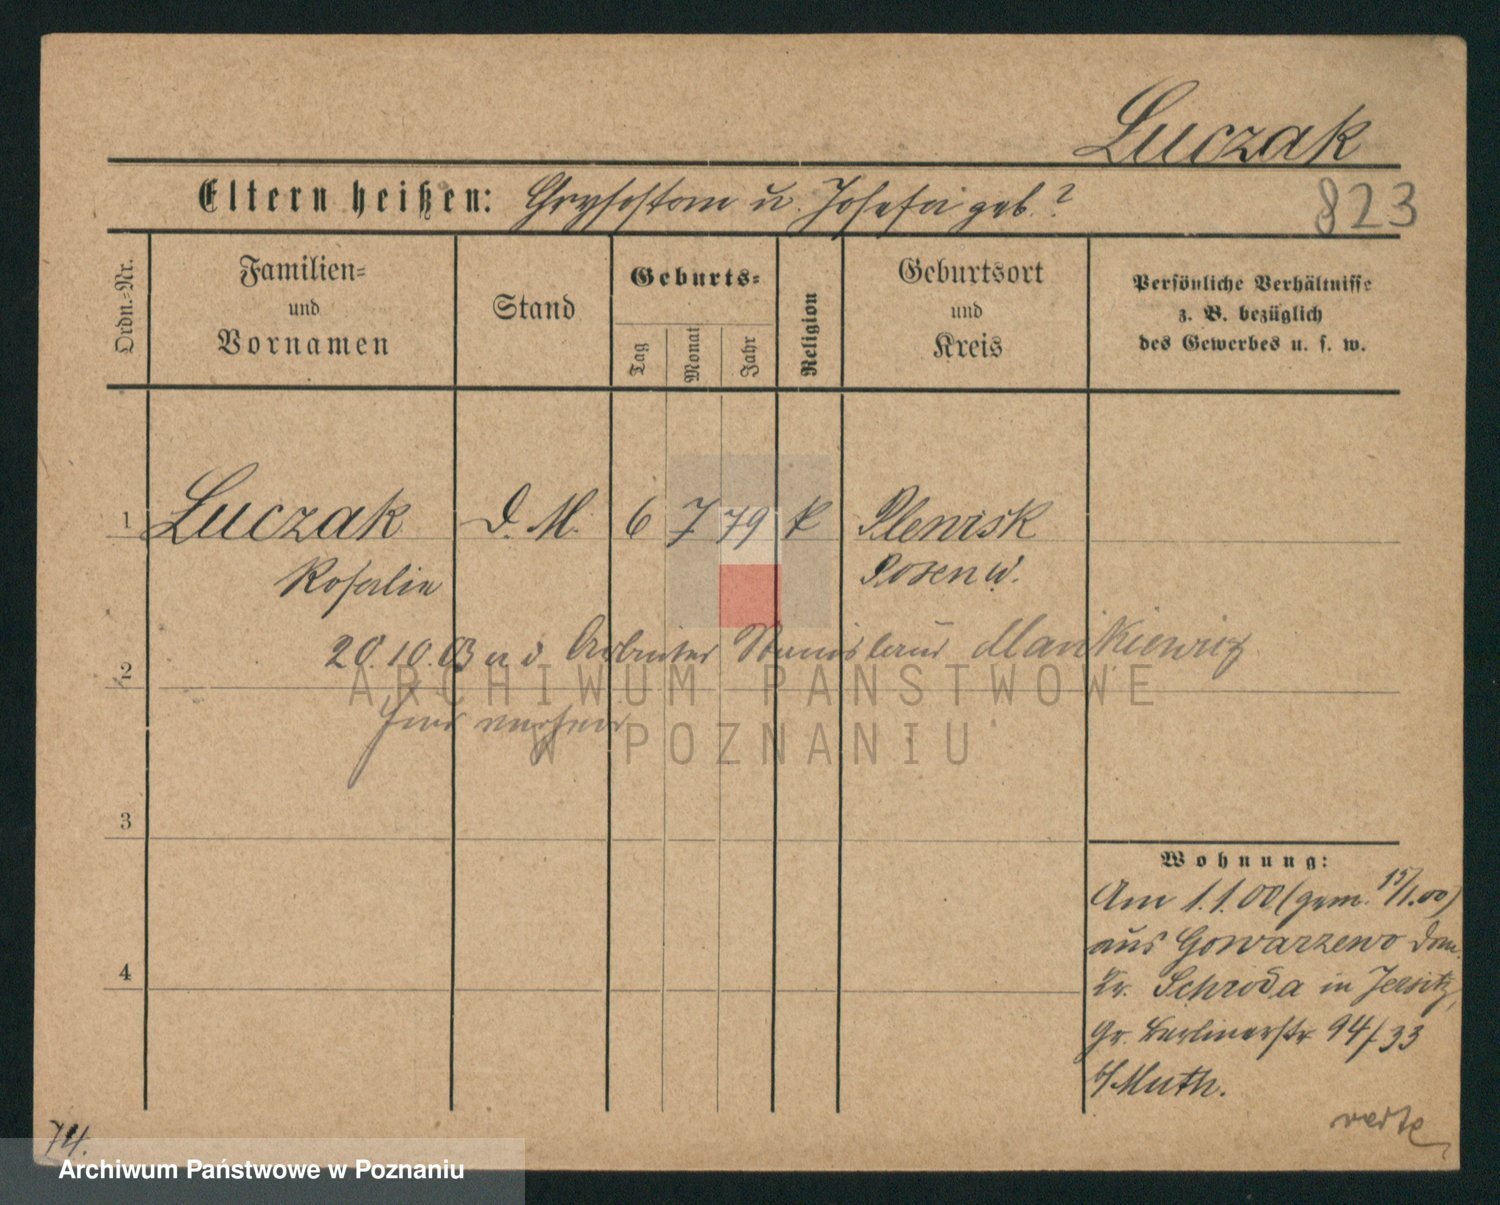 Luczak
Eltern heißen: Chrysostom u. Josefa geb. ?
823
Ordn.-Nr.
Familien-
und
Vornamen
Stand
Geburts-
Tag
Monat
Jahr
Religion
Geburtsort
und
Kreis
Persönliche Verhältnisse
z. B. bezüglich
des Gewerbes u. s. w.
1 Luczak D. M. 6 7 79 k Plewisk
Rosalie Posen W.
20.10.03 Arbeiter Stanislaus Mankiewicz
2
hier
3
4
Wohnung:
Am 1.1.00 (gem. 15/1.00)
aus Gowarzewo Dom.
Kr. Schroda in Jersitz,
Gr. Berlinerstr 94/33
b/Muth.
verte
74.
ARCHIWUM PAŃSTWOWE
W POZNANIU
Archiwum Państwowe w Poznaniu